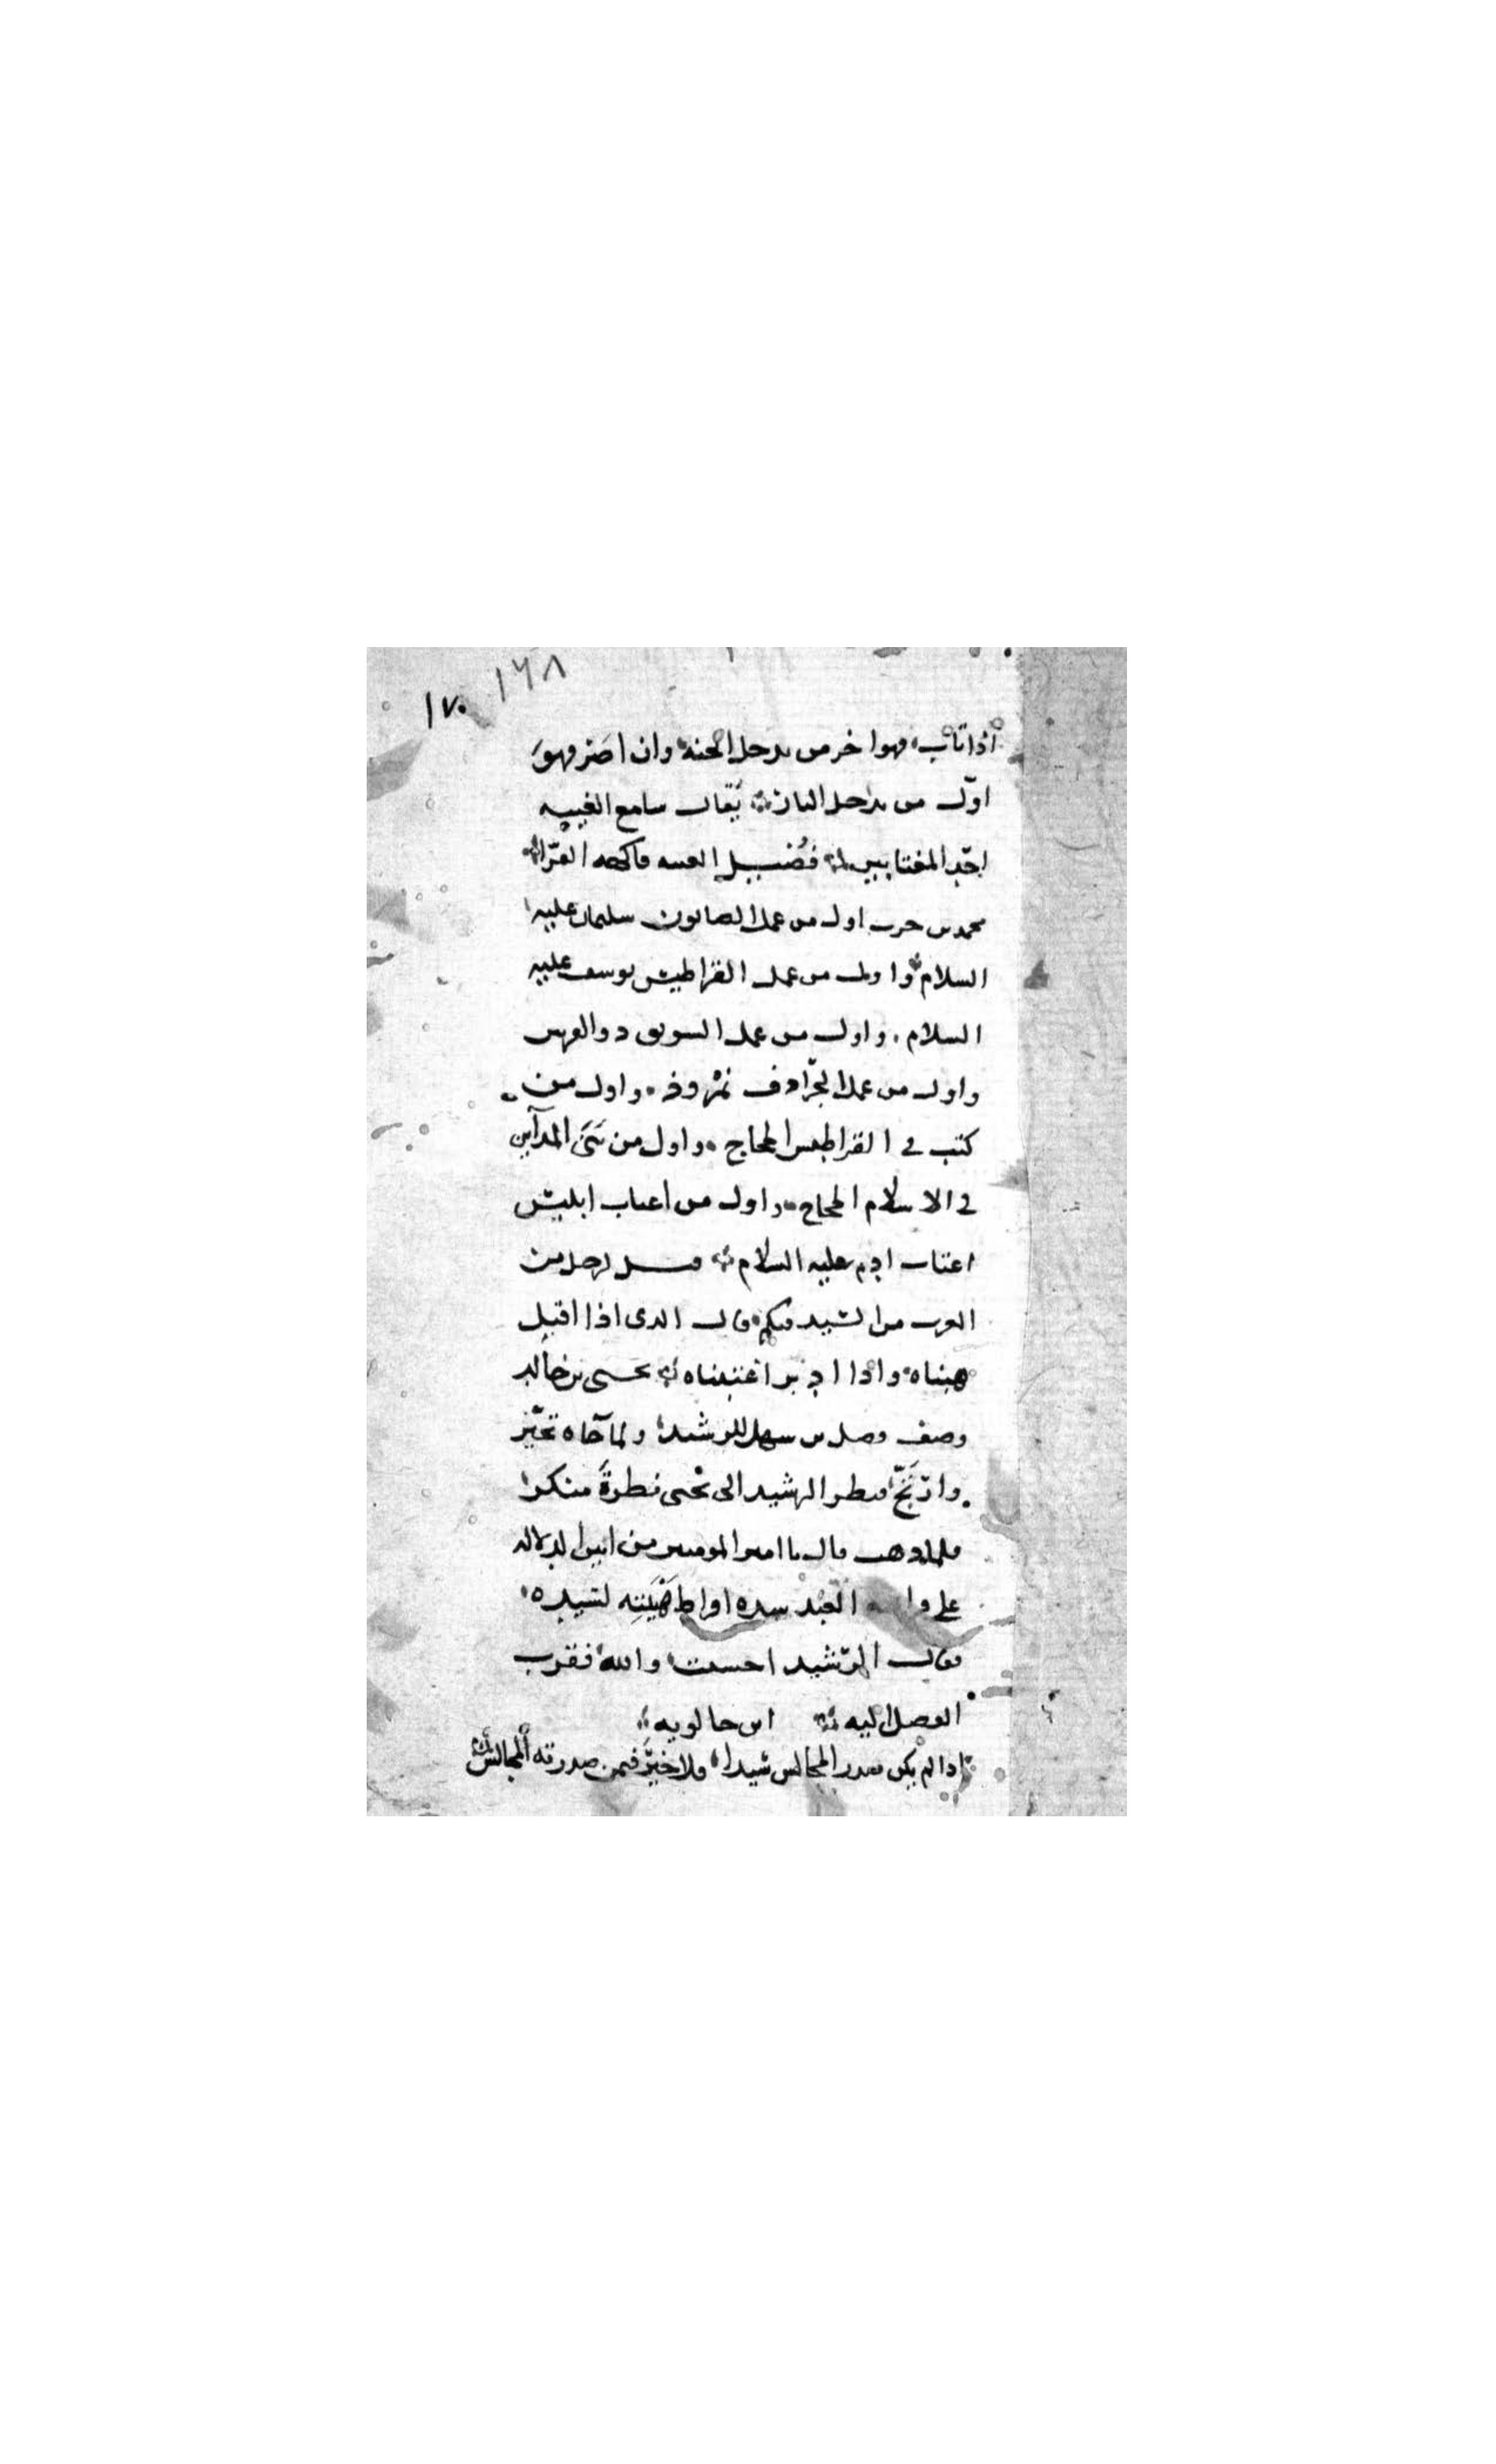 ١٦٨
١٧٠
اذا تاب فهو اخر من يدخل الجنه وان اصر فهو
اول من يدخل النار يقال سامع الغيبه
احد المغتابين فضيل الغيبه فاكهه القرا
محمد بن حرب اول من عمل الصابون سليمان عليه
السلام واول من عمل القراطيس يوسف عليه
السلام واول من عمل السويق ذو القرنين
واول من عمل الجرادق نمروذ واول من
كتب في القراطيس الحجاج واول من بنى المداين
في الاسلام الحجاج واول من اغتاب ابليس
اغتاب ادم عليه السلام قيل لرجل من
العرب من السيد فيكم قال الذي اذا اقبل
هبناه واذا ادبر اغتبناه يحيى بن خالد
وصف فضل بن سهل للرشيد ولما جاه تحير
وارتج فنظر الرشيد الى يحيى نظرة منكر
فلما ذهب قال يا امير المومنين من ابين الدلاله
على العبد سيده لسيده
فقال الرشيد احسنت والله فقرب
الفضل اليه ابن خالويه
اذا لم يكن صدر المجالس سيدا فلا خير فيمن صدرته المجالس